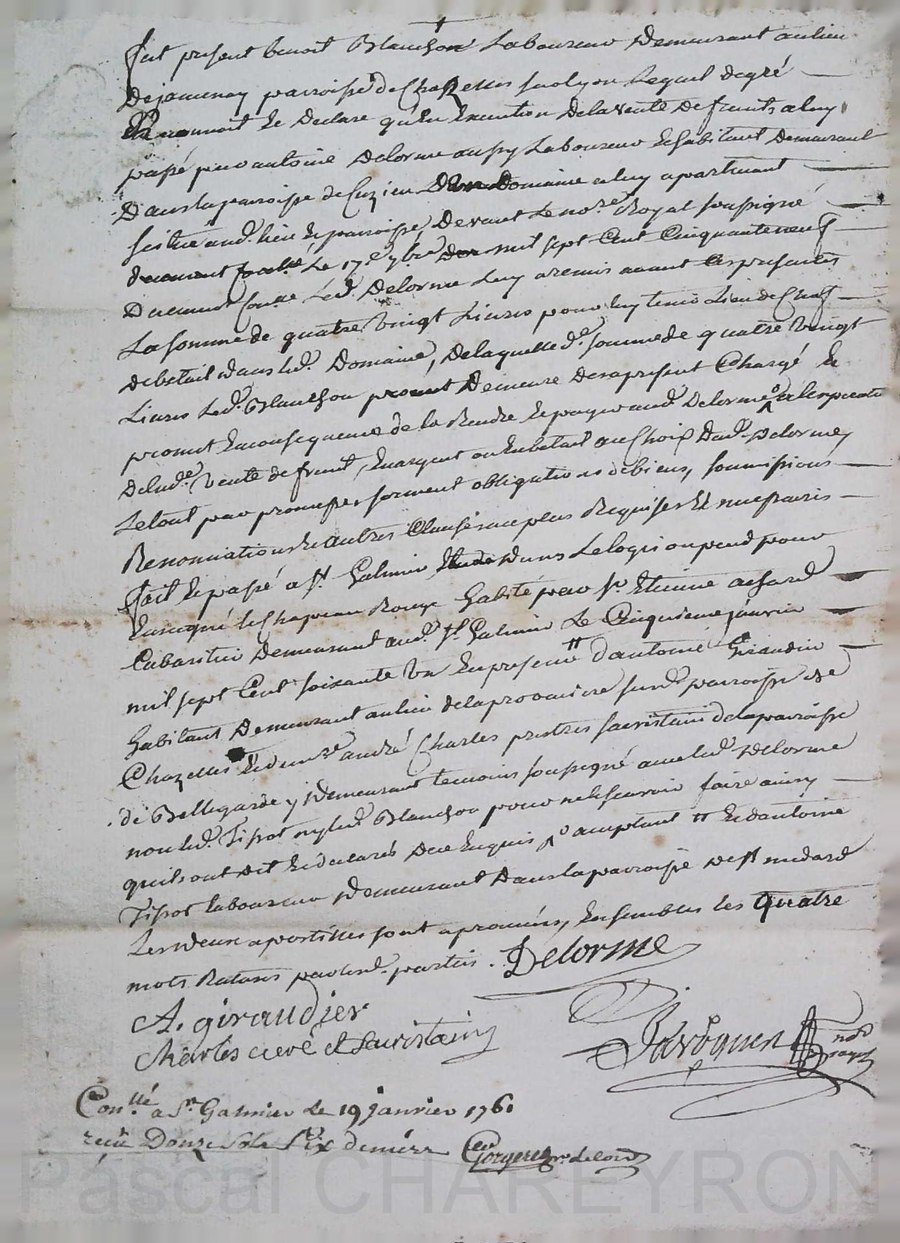 fut présent benoit Blanchon Laboureur Demeurant au lieu
De jamenay parroisse de Chazelles sur lyon Lequel de gré
Reconnoit et Declare qu'en Execution de la vente de fruits a luy
passé par antoine Delorme aussy Laboureur et habitant Demeurant
Dans la parroisse de Cuzieu Domaine a luy apartenant
scitué aud. lieu et parroisse Devant le no.re Royal soussigné
Le 17e 9bre mil sept Cent Cinquante neuf
Duement Con.llé Led. Delorme Luy a remis avant Ces présentes
La somme de quatre vingt Livres pour luy tenir Lieu de Chaf
de bétail dans led. Domaine, De laquelle d. somme de quatre vingt
Livres Led. Blanchon Demeure Des a present Chargé et
promet En consequence de la Rendre et payer aud. Delorme a l'expirante
De lad.e vente de fruit, En argent ou En bétail au Choix dud. Delorme,
Le tout par promesse serment obligations de biens, soumissions
Renonciations et autres Clauses au plus Requises Et nécessaires
fait et passé a St. Galmier Etude Dans Le logis ou pend pour
Enseigne le Chapeau Rouge habité par Sr. Etienne achard
Cabaretier Demeurant aud. St. Galmier Le Cinquieme janvier
mil sept Cent soixante Un En presence d'antoine Giraudier
habitant Demeurant au lieu de la provanciere sur d. parroisse de
Chazelles Et de m.re andré Charles prestre sacristain de la parroisse
de Bellegarde y Demeurant temoins soussigné avec led. Delorme
non led. Tissot ny led. Blanchon pour ne le sçavoir faire ainsy
qu'ils ont dit et declaré De ce Enquis acceptant # Et d'antoine
Tissot laboureur Demeurant Dans la parroisse De St medard
Les deux apostilles sont aprouvées, Ensembles les quatre
mots Raturés par lesd. parties. Delorme
A. giraudier
Charles curé et sacristain
no.re Royal
Con.llé a St Galmier le 19 janvier 1761
reçu Douze Sols Six deniers Gorgeret
Pascal CHAREYRON